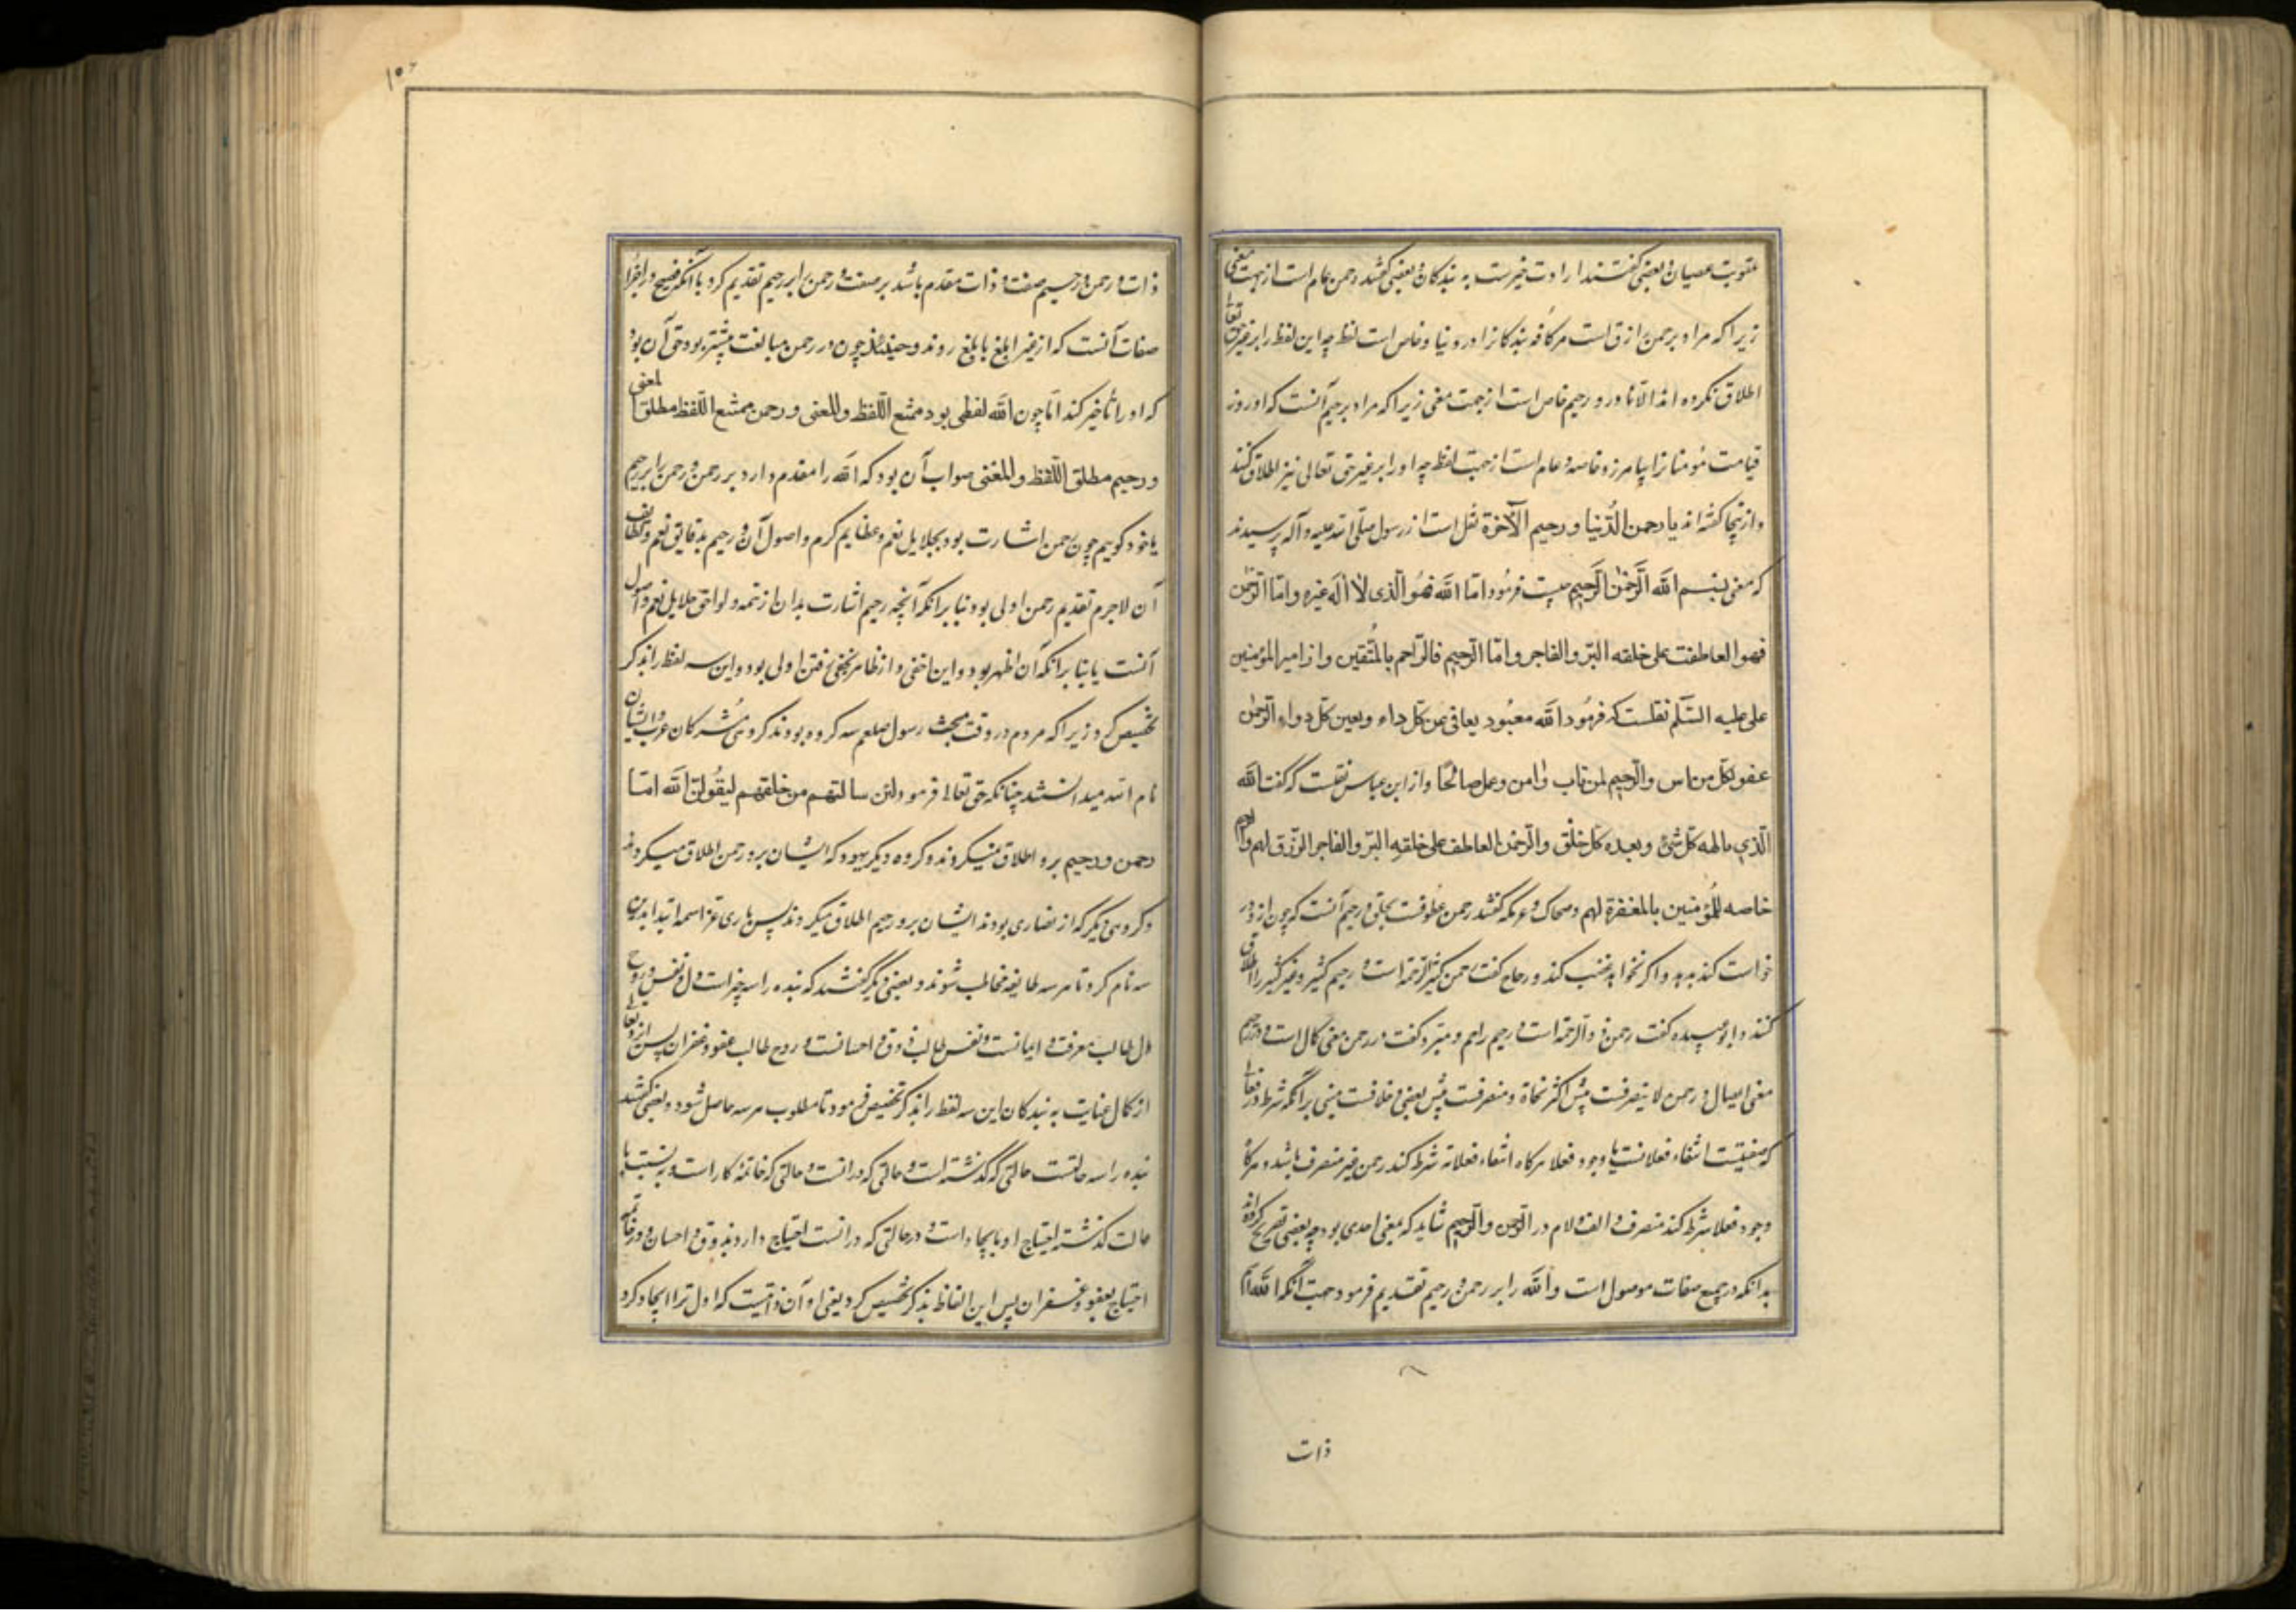 عقوبت عصیان و بعضی گفتند ارادت خیرست به بندکان و بعضی گفتند رحمن عام است از جهت معنی
زیرا که مراد برحمن ازق است مر کافه بندکانرا در دنیا و خاص است لفظ چه این لفظ را بر غیر حق تعالی
اطلاق نکرده اند الا نادر و رحیم خاص است از جهت معنی زیرا که مراد برحیم آنست که او روز
قیامت مؤمنانرا بیامرزد خاصه و عام است از جهت لفظ چه او را بر غیر حق تعالی نیز اطلاق کنند
و ازینجا گفته اند یا رحمن الدّنیا و رحیم الآخرة نقل است از رسول صلّی الله علیه و آله پرسیدند
که معنی بسم الله الرّحمن الرّحیم چیست فرمود امّا الله فهو الّذی لا اله غیره و امّا الرّحمن
فهو العاطف علی خلقه البرّ و الفاجر و امّا الرّحیم فالرّاحم بالمتّقین و از امیر المؤمنین
علی علیه السّلم نقلست که فرمود الله معبود یعافی من کلّ داء و یعین کلّ دواء الرّحمن
عفو لکلّ من ناس و الرّحیم لمن تاب و امن و عمل صالحًا و از ابن عباس نقلست که گفت الله
الّذی یالهه کلّ شئ و یعبده کلّ خلق و الرّحمن العاطف علی خلقه البرّ و الفاجر الرّزق لهم و الرحیم
خاصه للمؤمنین بالمغفرة لهم و ضحاک و عرمکه گفتند رحمن عطوفت بخلق و رحیم آنست که چون ازو در
خواست کنند بدهد و اگر نخواهد غضب کند و زجاج گفت رحمن کثیر الرّحمة است و رحیم کثیر و غیر کثیر را اطلاق
کنند و ابو عبیده گفت رحمن ذو الرّحمة است و رحیم راحم و مبرّد گفت در رحمن معنی کمال است و در رحیم
معنی ایصال و رحمن لا ینصرفت پیش اکثر نحاة و منصرفت پیش بعضی و خلافت مبنی بر آنکه شرط در فعلان
که صفتیست انتفاء فعلانست یا وجود فعلا هرکاه انتفاء فعلانه شرط کنند رحمن غیر منصرف باشد و هرگاه
وجود فعلا شرط کنند منصرف و الف و لام در الرّحمن و الرّحیم شاید که معنی احدی بود چه بعضی تصریح کرده اند
بدانکه در جمیع صفات موصول است و الله را بر رحمن و رحیم تقدیم فرمود جهت آنکه الله اسم
ذات
ذات و رحمن و رحیم صفت و ذات مقدم باشد بر صفت و رحمن را بر رحیم تقدیم کرد با آنکه فصیح در اجراء
صفات آنست که از غیر ابلغ بابلغ روند و حینئذ چون در رحمن مبالغت بیشتر بود حق آن بود
که او را تأخیر کند امّا چون الله لفظی بود ممتنع اللّفظ و المعنی و رحمن ممتنع اللّفظ مطلق المعنی
و رحیم مطلق اللّفظ و المعنی صواب آن بود که الله را مقدم دارد بر رحمن و رحمن را بر رحیم
یا خود گوییم چون رحمن اشارت بود بجلایل نعم و عظایم کرم و اصول آن و رحیم بدقایق نعم و لطایف
آن لاجرم تقدیم رحمن اولی بود بنا بر آنکه آنچه رحیم اشارت بدان از تتمه و لواحق جلایل نعم و اصول
آنست یا بنا بر انکه آن اظهر بود و این اخفی و از ظاهر بخفی رفتن اولی بود و این سه لفظ را بذکر
تخصیص کرد زیرا که مردم در وقت مبعث رسول صلعم سه کروه بودند کروهی مشرکان عرب و ایشان
نام الله میدانستند چنانکه حق تعالی فرمود و لئن سالتهم من خلقهم لیقولنّ الله امّا
رحمن و رحیم برو اطلاق نمیکردند و کروه دیگر یهود که ایشان برو رحمن اطلاق میکردند
و کروهی دیگر که از نصاری بودند ایشان برو رحیم اطلاق میکردند پس باری عزّ اسمه ابتدا بدین
سه نام کرد تا هر سه طایفه مخاطب شوند و بعضی دیگر گفتند که بنده را سه چیز است دل و نفس و روح
دل طالب معرفت و ایمانست و نفس طالب ذوق و احسانست و روح طالب عفو و غفران پس ازو تعالی
از کمال عنایت به بندکان این سه لفظ را بذکر تخصیص فرمود تا مطلوب هر سه حاصل شود و بعضی گفتند
بنده را سه حالتست حالتی که گذشته است و حالتی که در انست و حالتی که خاتمه کار است و به نسبت با
حالت گذشته احتیاج او بایجاد است و در حالتی که در انست احتیاج دارد بذوق و احسان و در خاتمه
احتیاج بعفو و غفران پس این الفاظ بذکر تخصیص کرد یعنی او آن ذاتیست که اول ترا ایجاد کرد